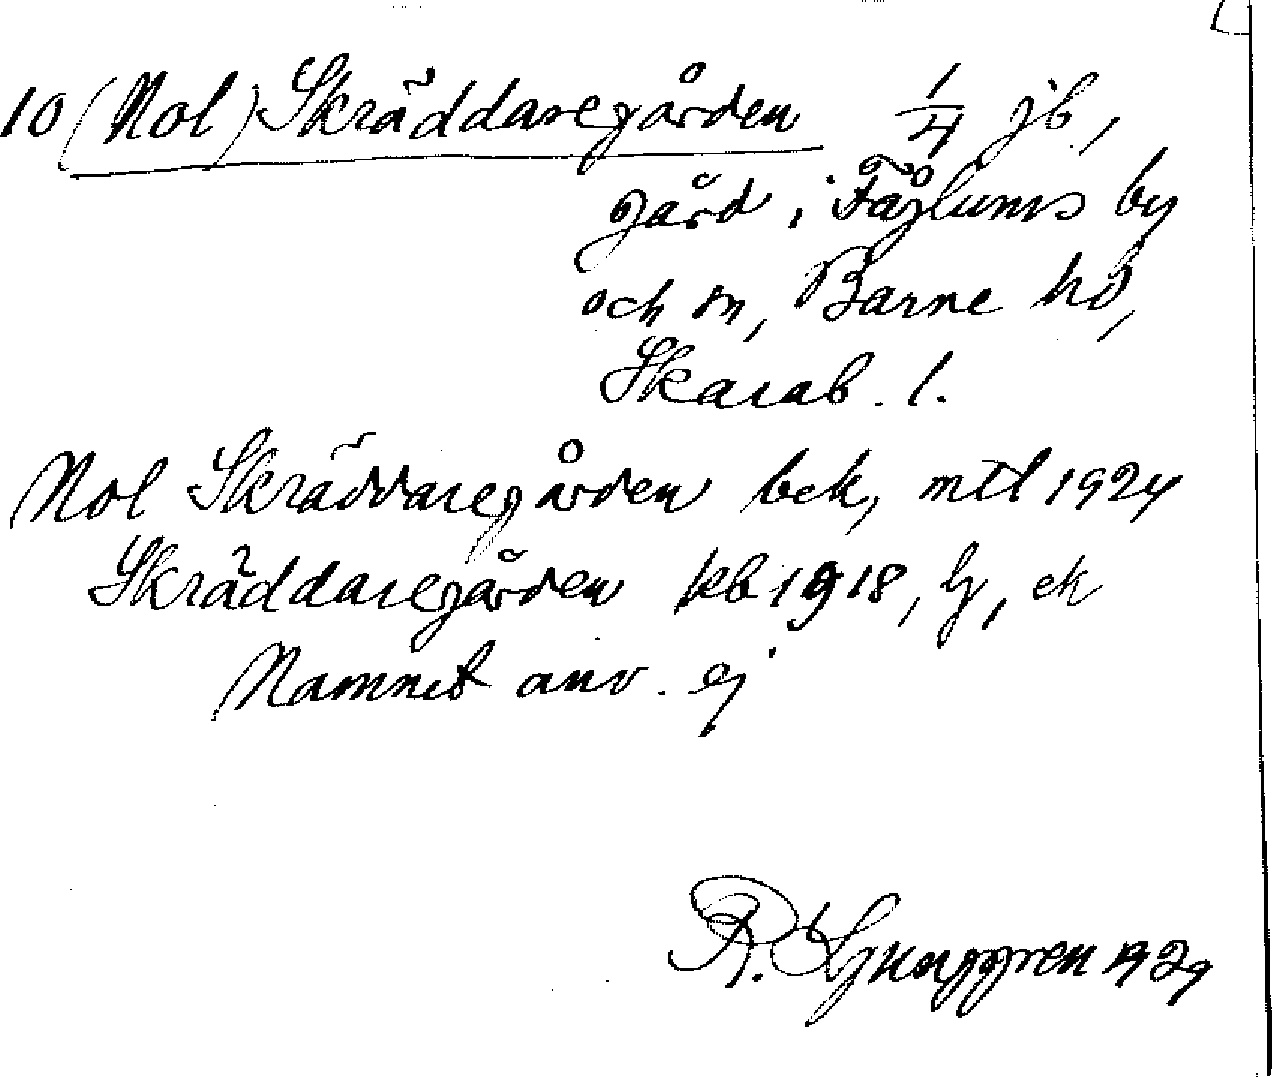 10 (Nol) Skräddaregården 1/4 jb,
gård i Fåglums by
och sn, Barne hd,
Skarab. l.
Nol Skräddaregården bek, mtl 1924
Skräddaregården kb 1918, lj, ek
Namnet anv. ej
R. Ljunggren 1929